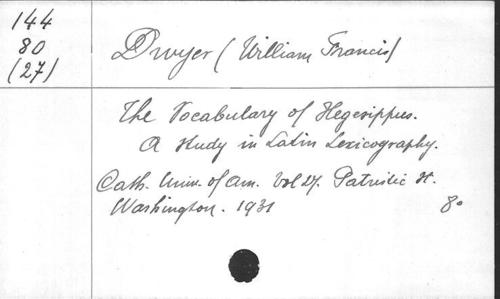 144
80
(27)
Dwyer (William Francis)
The Vocabulary of Hegesippus.
A Study in Latin Lexicography.
Cath. Univ. of Am. Vol 27. Patristic St.
Washington. 1931 8º